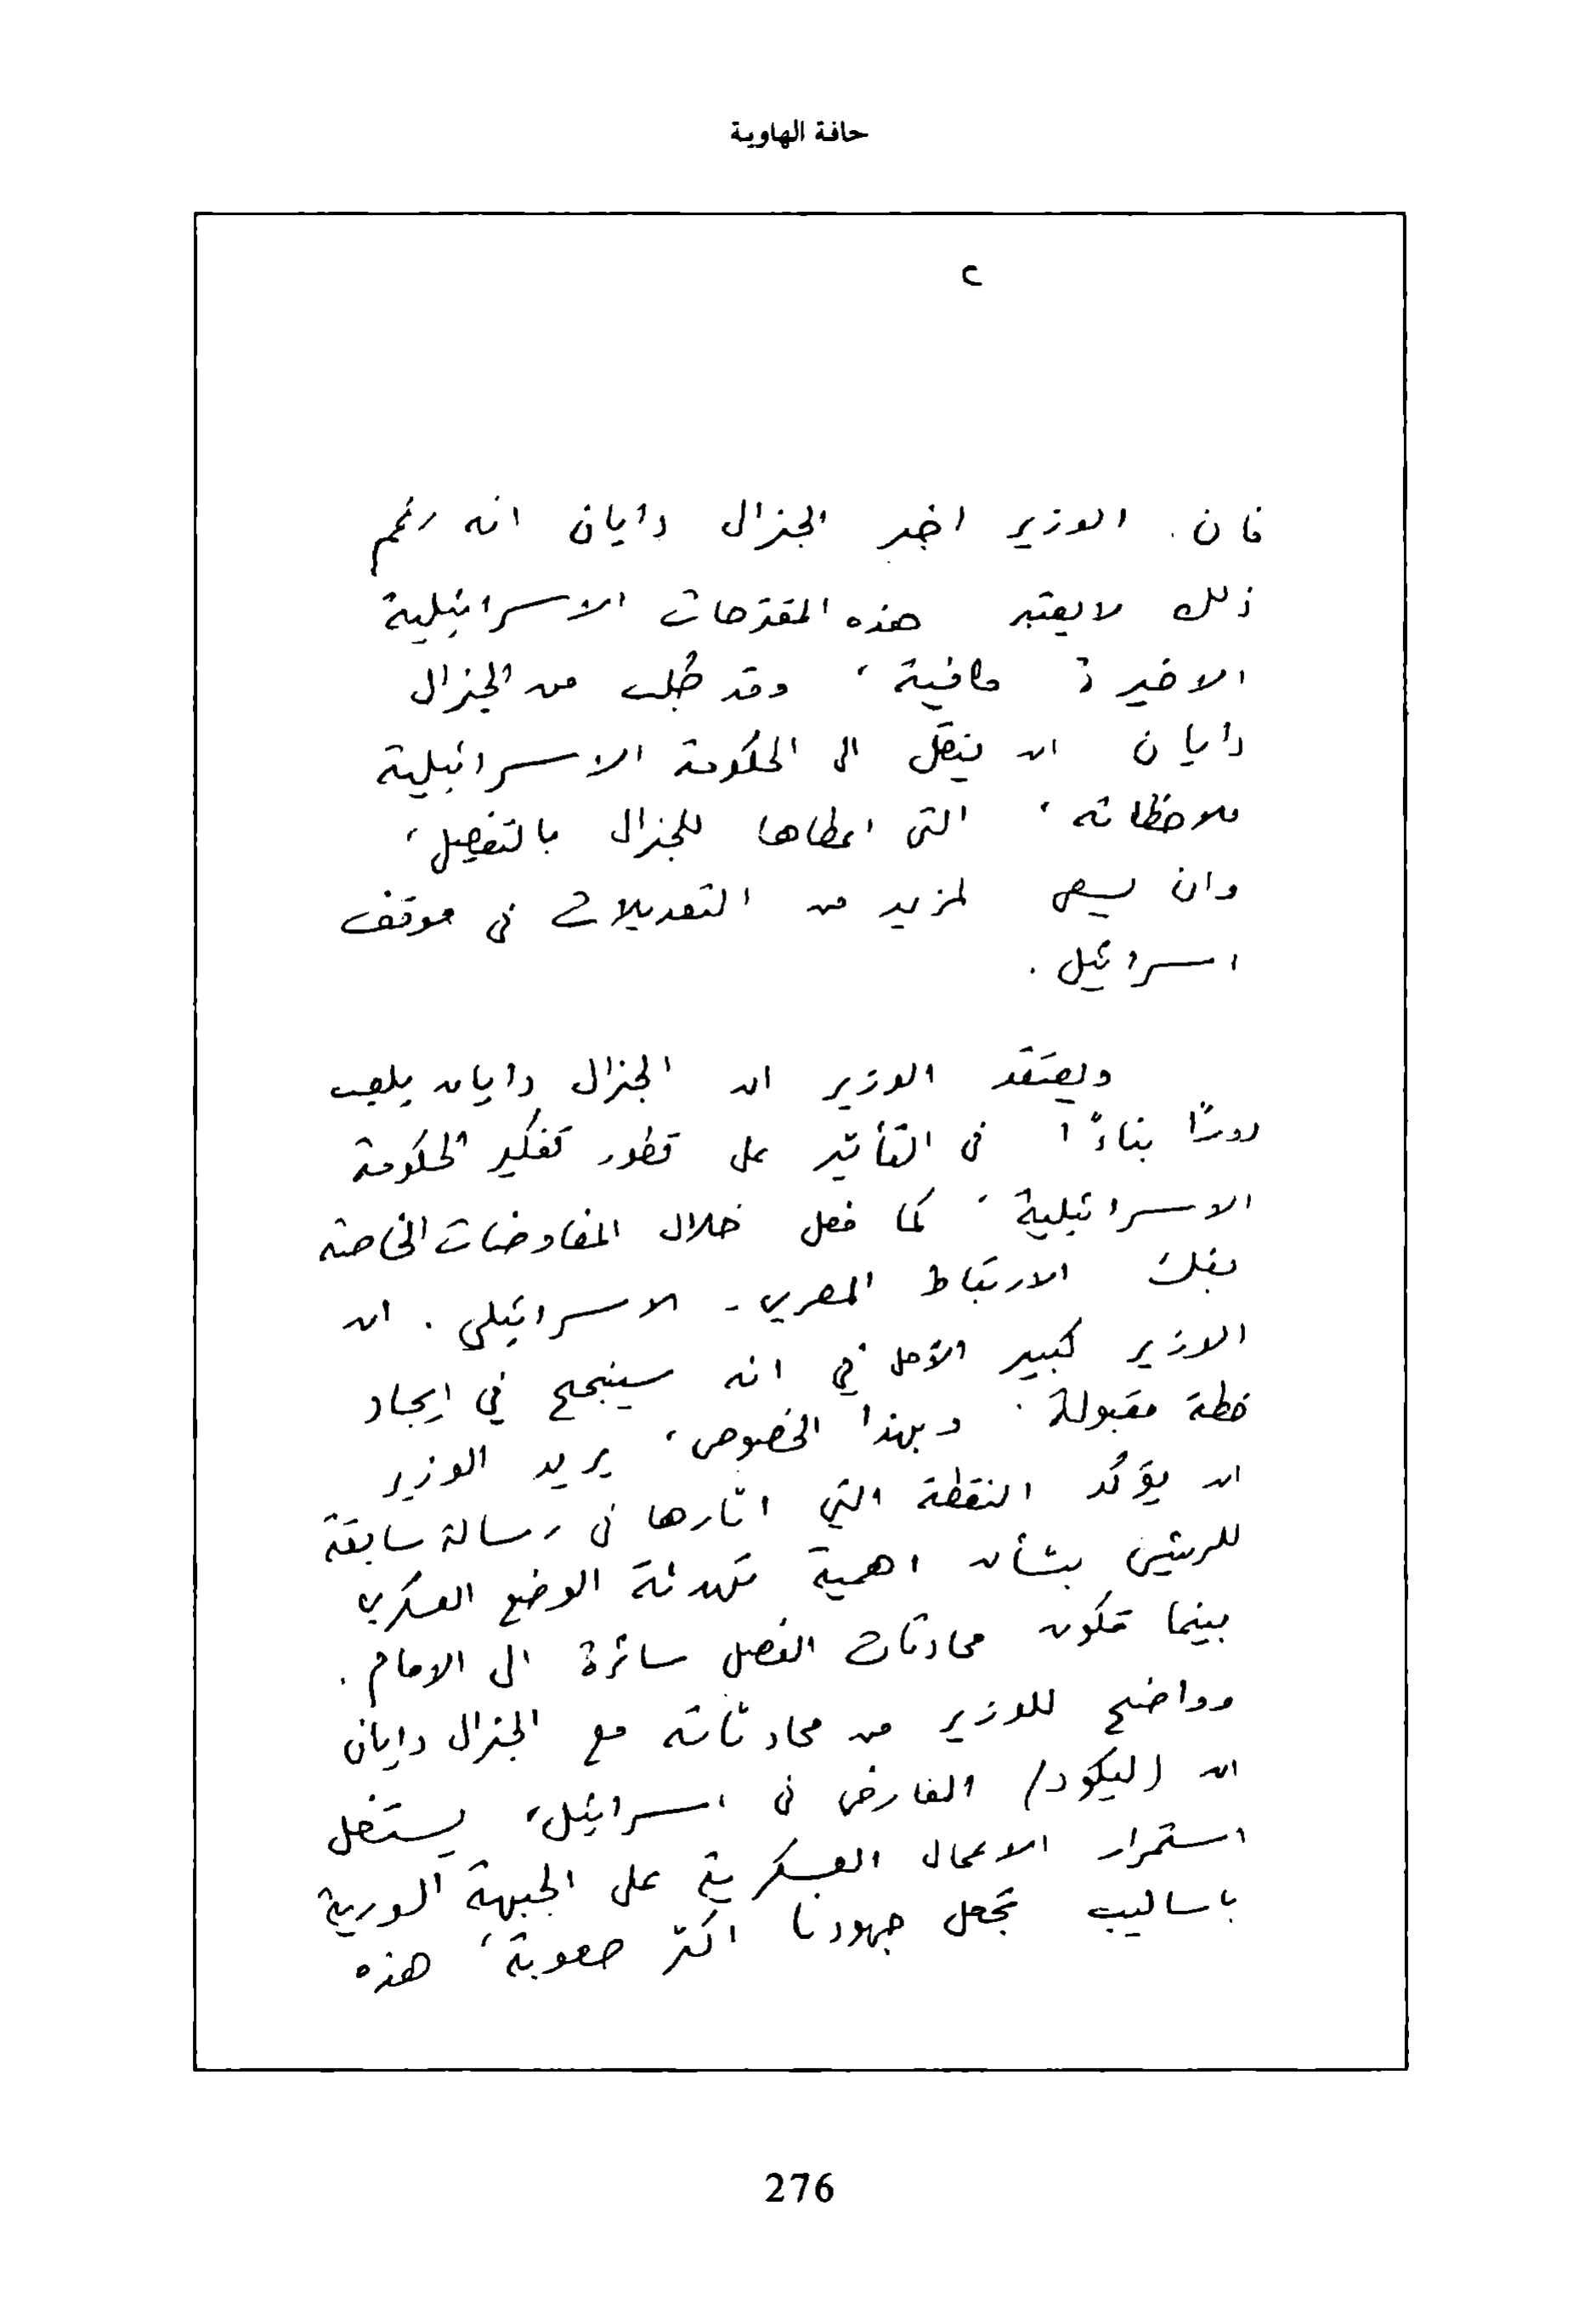 حافة الهاوية
٢
فان. الوزير اخبر الجنرال دايان انه رغم
ذلك لا يعتبر هذه المقترحات الاسرائيلية
الاخيرة كافية، وقد طُلب من الجنرال
دايان ان ينقل الى الحكومة الاسرائيلية
ملاحظاته، التي اعطاها للجنرال بالتفصيل،
وان يسعى لمزيد من التعديلات في موقف
اسرائيل.
ويعتقد الوزير ان الجنرال دايان يلعب
دورًا بناءً ا في التأثير على تطور تفكير الحكومة
الاسرائيلية، كما فعل خلال المفاوضات الخاصة
بفك الارتباط المصري - الاسرائيلي. ان
الوزير كبير الأمل في انه سينجح في ايجاد
خطة مقبولة. وبهذا الخصوص، يريد الوزير
ان يؤكد النقطة التي اثارها في رسالة سابقة
للرئيس بشأن اهمية تهدئة الوضع العسكري
بينما تكون محادثات الفصل سائرة الى الامام.
وواضح للوزير من محادثاته مع الجنرال دايان
ان (ليكود) المعارض في اسرائيل، يستغل
استمرار الاعمال العسكرية على الجبهة السورية
باساليب تجعل جهودنا اكثر صعوبة، هذه
276